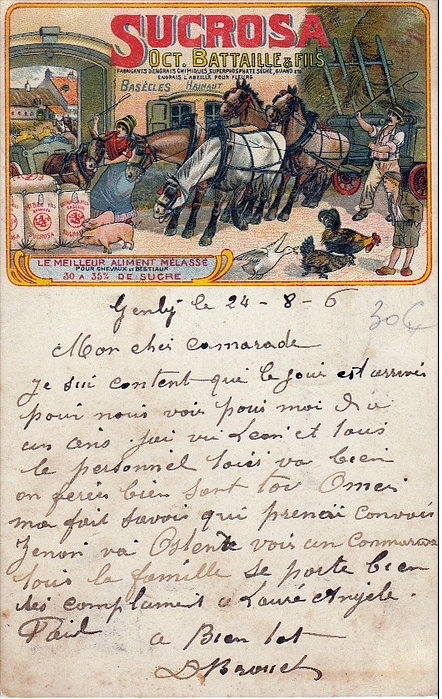 SUCROSA
OCT. BATTAILLE & FILS
FABRICANTS D'ENGRAIS CHIMIQUES, SUPERPHOSPHATE SÈCHE, GUANO ETC
ENGRAIS L'ABEILLE POUR FLEURS
BASÈCLES HAINAUT
SUCROSA
LE MEILLEUR ALIMENT MÉLASSÉ
POUR CHEVAUX ET BESTIAUX
30 A 35% DE SUCRE
le 24-8-6
30€
Mon cher camarade
Je sui content que le jour est arrivés
pour nous voir pour moi
un ans jai vu Leon et tous
le personnel va bien
on bien Omer
ma fait savoir qui convois
Zenon va Ostende voir un
tous la famille se porte bien
des complument a Laure Anjele.
a Bien tot